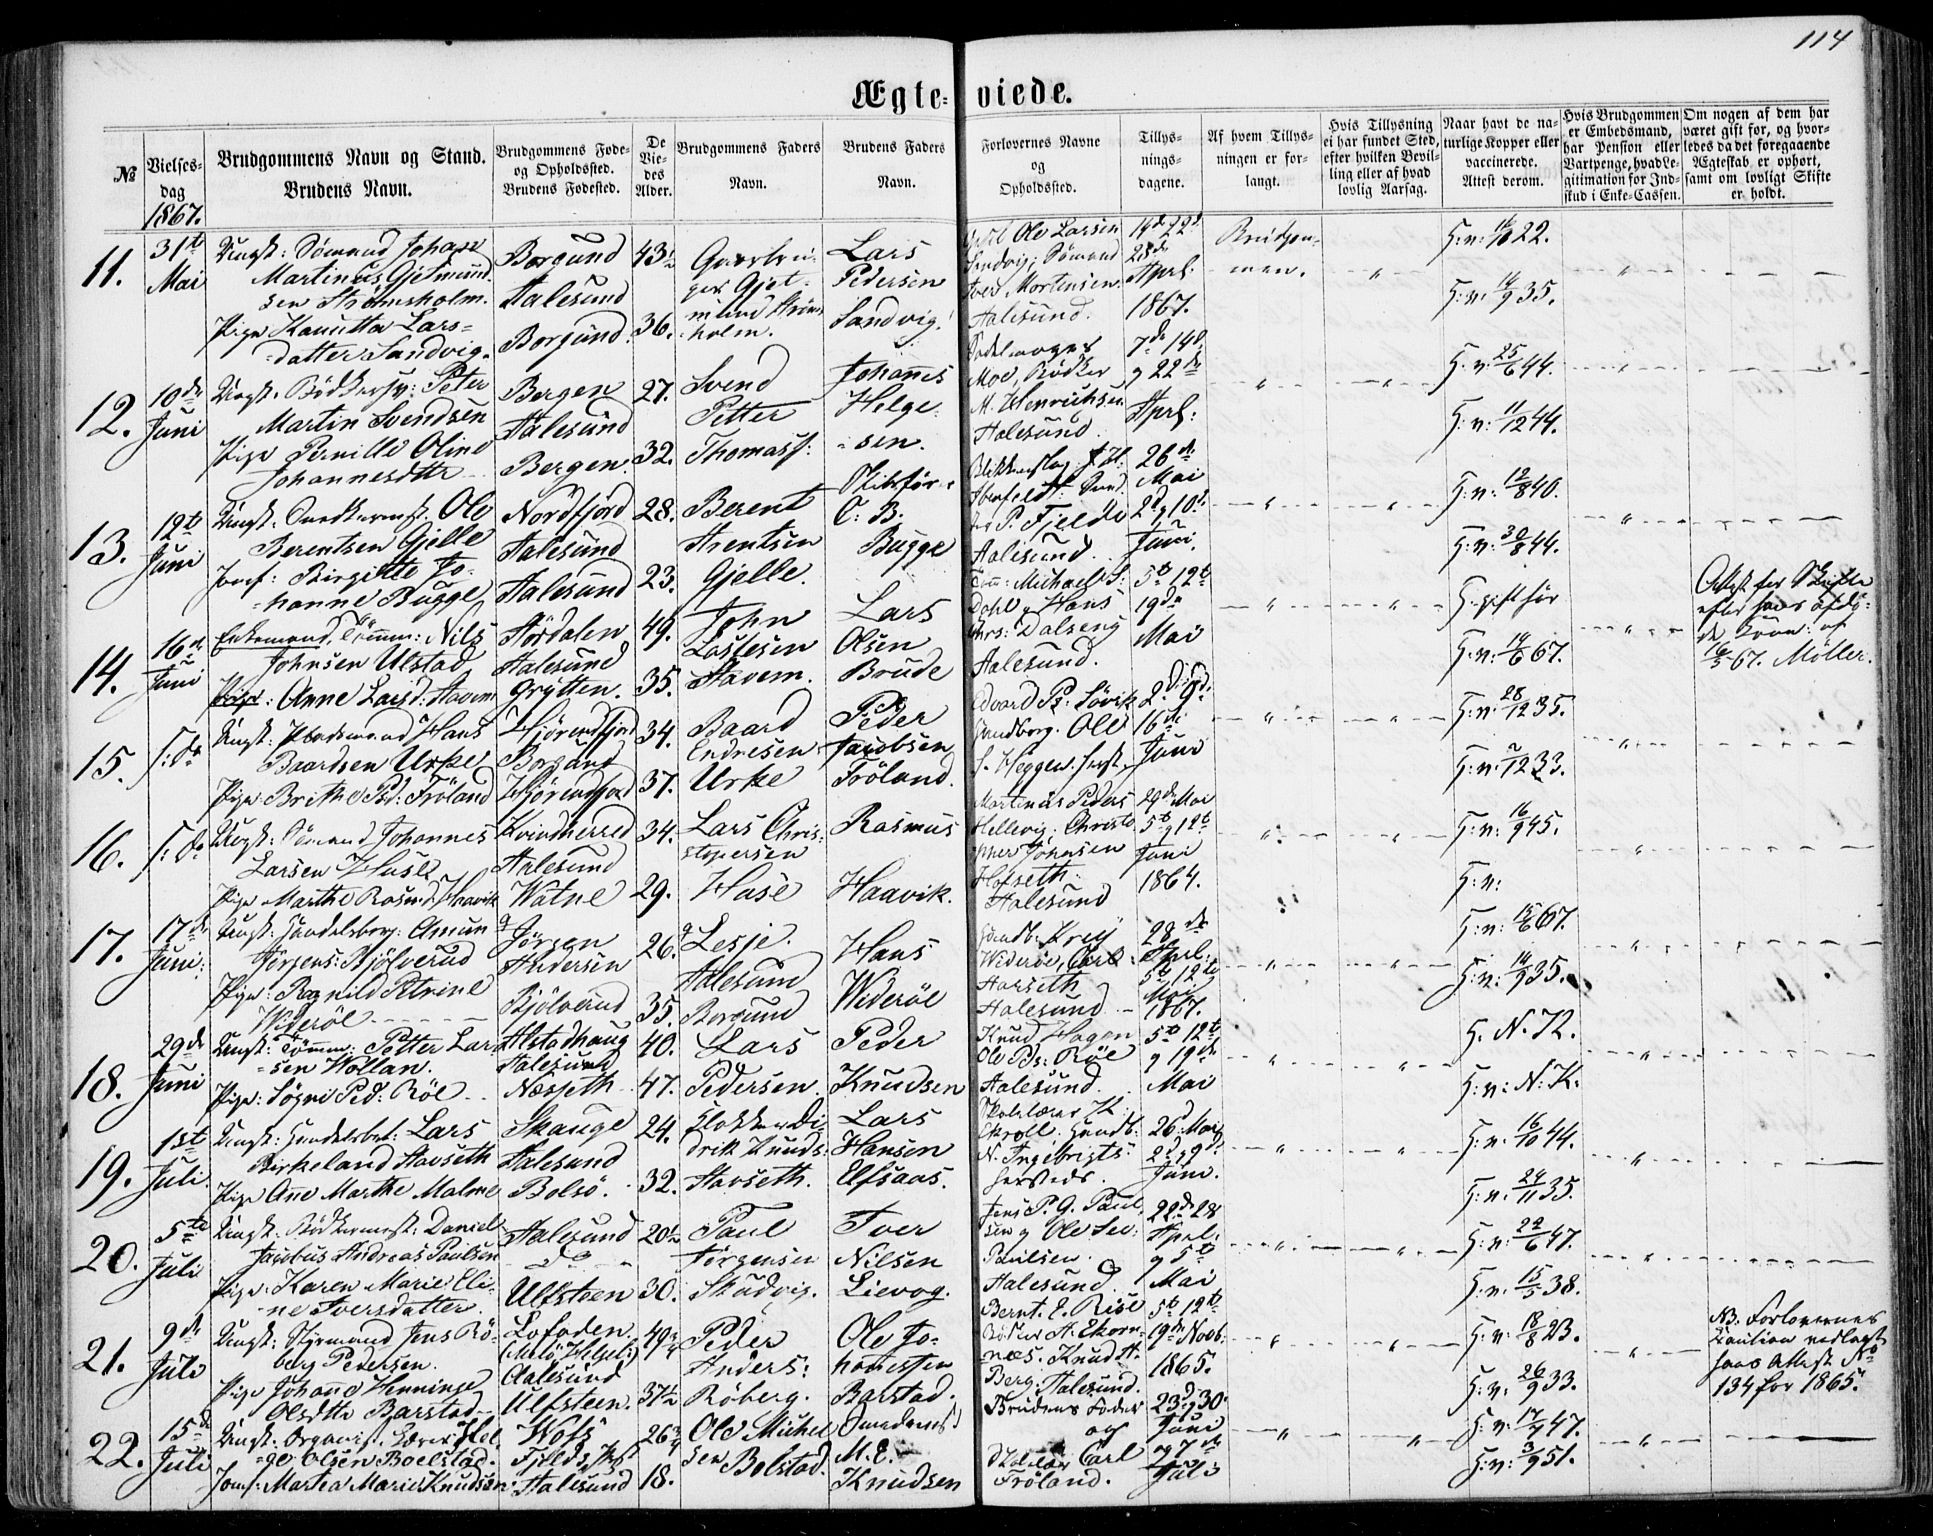 114
Ægte- viede.
№
Vielses-
dag
1867.
Brudgommens Navn og Stand.
Brudens Navn.
Brudgommens Føde-
og Opholdssted.
Brudens Fødested.
De
Vie-
des
Alder.
Brudgommens Faders
Navn.
Brudens Faders
Navn.
Forlovernes Navne
og
Opholdssted.
Tillys-
nings-
dagene.
Af hvem Tillys-
ningen er for-
langt.
Hvis Tillysning
ei har fundet Sted,
efter hvilken Bevil-
ling eller af hvad
lovlig Aarsag.
Naar havt de na-
turlige Kopper eller
vaccinerede.
Attest derom.
Hvis Brudgommen
er Embedsmand,
har Pension eller
Vartpenge, hvad Le-
gitimation for Ind-
skud i Enke-Cassen.
Om nogen af dem har
været gift før, og hvor-
ledes da det foregaaende
Ægteskab er ophørt,
samt om lovligt Skifte
er holdt.
11.
31te
Mai
Ungk: Sømand Johan
Martinus Gjetmund-
sen Strømsholm.
Pige Kanutta Lars-
datter Sandvig.
Borgund
Aalesund
Borgund.
43½
36.
Gaarbru-
ger Gjet-
mund Strøms-
holm.
Lars
Pedersen
Sandvig.
Ole Larsen
Sandvig, Sømand
Iver Mortensen
Aalesund.
14de 22de
28de
April
1867.
Brudgom-
men.
H: v: 16/10 22.
H: v: 14/9 35.
12.
10de
Juni
Ungk. Bødkersv: Peter
Martin Svendsen
Pige Pernille Oline
Johannesdtr
Bergen
Aalesund
Bergen.
27.
32.
Svend
Petter
Thomass:
Johannes
Helge-
sen.
Moe, Bødker
M. Henrichsen
Aalesund.
7de 14de
g 22de
April:
H: v: 25/6 44.
H: v: 11/12 44.
13.
12te
Juni
Ungk: Snedkermst. Ole
Berentsen Gjelle
Jomf: Birgitte Jo-
hanne Bugge
Nordfjord
Aalesund
Aalesund
28.
23.
Berent
Arentsen
Gjelle.
C: B:
Bugge
P. Fjelde
Aalesund.
26de
Mai
2d g 10de
Juni.
H: v: 12/8 40.
H: v: 30/8 44.
14.
16de
Juni
Enkemand, Tømm: Nils
Johnsen Ulstad
Pige: Anne Larsd: Stavem
Hørdalen
Aalesund
Grytten.
49.
35.
John
Lostesen
Stavem.
Lars
Olsen
Brude
Tøm: Michael S:
Dahl g Hans
Chrs: Dalseng
Aalesund.
5te 12te
19de
Mai
H. gift før
H: v: 14/6 67.
Attest for Skifte
efter hans afdø-
de Kone: af
16/5 67. Møller.
15.
S: D:
Ungk: Arbeidsmand Hans
Baardsen Urke
Pige Brithe Pd: Frøland
Hjørendfjord
Borgund
Hjørendfjord
34.
37.
Baard
Endresen
Urke
Peder
Jacobsen
Frøland.
Edvard Ps: Søvik
Handborg. Ole
S. Heggen.
2d 9de
16de
Juni
H: v: 28/12 35.
H: v: 2/12 33.
16.
S: D:
Ungk: Sømand Johannes
Larsen Huse
Pige Marthe Rasmd: Haavik
Kvindherred
Aalesund
Watne
34.
29.
Lars Chris-
stopersen
Huse
Rasmus
Haavik.
Martinus Peders
Hellevig, Christo-
pher Johnsen
Hofseth
Aalesund
29de Mai
5te g 12te
Juni
1864.
H: v: 16/9 45.
H: v:
17.
17de
Juni:
Ungk: Handelsborg: Amund
Jørgens: Bjølverud
Pige: Ragnild Petrine
Widerøe
Jørgen
Andersen
Bjølverud
26.
35.
Lesje.
Aalesund
Borgund
Hans
Widerøe
Handb: Krey
Widerøe, Carl
Aarseth
Aalesund
28de
April:
5te 12te
Mai
1867.
H: v: 15/6 67.
H: v: 14/9 35.
18.
29de
Juni
Ungk: Tømm: Petter Lar-
sen Wollan.
Pige: Søgni Ped: Røe
Alstadhaug
Aalesund
Næsseth
40.
47.
Lars
Pedersen
Peder
Knudsen
Knud Hagen
Ole Ps: Røe
Aalesund.
5te 12te
g 19de
Mai
H. N. K.
H: v: N. K.
19.
1ste
Juli
Ungk: Handelsbet: Lars
Birkeland Havseth
Pige Ane Marthe Malme
Skauge
Aalesund
Bolsø.
24.
32.
Klokker Di-
drik Knuds:
Havseth.
Lars
Hansen
Elfsaas.
Skolelærer K.
Kroll, Handb:
N. Ingebrigts:
26d Mai
2d g 9de
Juni.
H: v: 16/10 44.
H: v: 24/11 35.
20.
5te
Juli
Ungk: Bødkermst: Daniel
Jacobus Andreas Paulsen
Pige Karen Marie Eli-
ne Iversdatter.
Aalesund
Do
Ulfsteen
20½
30.
Paul
Jørgensen
Skudvig.
Iver
Nilsen
Lievog.
Jens P. G. Paul
sen g Ole Sev:
Paulsen.
Aalesund
22de 28
April:
g 5te
Mai
H: v: 22/6 47.
H: v: 15/5 38.
21.
9de
Juli
Ungk: Styrmand Jens Rø-
berg Pedersen.
Pige Johanne Henninge
Olsdtr Barstad
Lofoden.
Aalesund
Ulfsteen.
49¾
37½
Peder
Anders:
Røberg.
Ole Jo-
hannessen
Barstad.
Bernt. E. Riise
Bødker A. Ekorn-
næs. Knud A.
Berg, Aalesund.
5te 12te
19de Novb:
1865.
H: v: 18/8 23.
H: v: 26/9 33.
NB. Forlovernes
Caution vedlagt
hans Attest No
134 for 1865.
22.
15de
Juli
Ungk: Organist, Lærer Hel-
ge Olsen Boelstad.
Jomf: Martha Marie Knudsen
Wofs
Aalesund
26¾
18.
Ole Michel-
sen Bolstad.
Smedmst
M. E.
Knudsen
Brudens Fader
og
Skolelær Carl
Frøland.
23de g 30te
Juni
og 7de
Juli
H: v: 17/7 47.
H: v: 3/9 51.